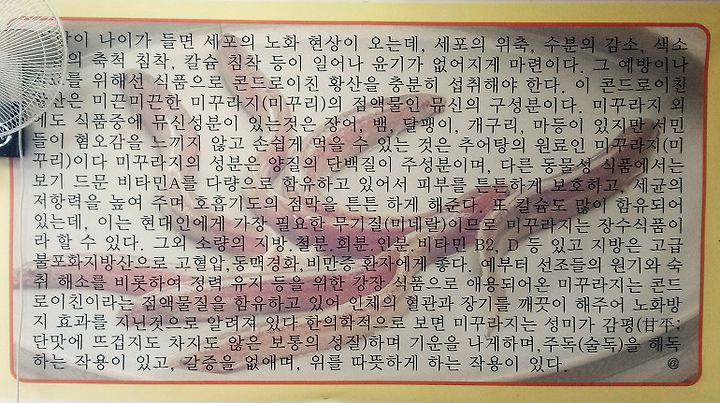 이 나이가 들면 세포의 노화 현상이 오는데, 세포의 위축, 수분의 감소, 색소
축적 침착, 칼슘 침착 등이 일어나 윤기가 없어지게 마련이다. 그 예방이나
를 위해선 식품으로 콘드로이친 황산을 충분히 섭취해야 한다. 이 콘드로이친
황산은 미끈미끈한 미꾸라지(미꾸리)의 점액물인 뮤신의 구성분이다. 미꾸라지 외
에도 식품중에 뮤신성분이 있는것은 장어, 뱀, 달팽이, 개구리, 마등이 있지만 서민
들이 혐오감을 느끼지 않고 손쉽게 먹을 수 있는 것은 추어탕의 원료인 미꾸라지(미
꾸리)이다 미꾸라지의 성분은 양질의 단백질이 주성분이며, 다른 동물성 식품에서는
보기 드문 비타민A를 다량으로 함유하고 있어서 피부를 튼튼하게 보호하고, 세균의
저항력을 높여 주며 호흡기도의 점막을 튼튼 하게 해준다. 또 칼슘도 많이 함유되어
있는데, 이는 현대인에게 가장 필요한 무기질(미네랄)이므로 미꾸라지는 장수식품이
라 할 수 있다. 그외 소량의 지방.철분.회분.인분.비타민 B2, D 등 있고 지방은 고급
불포화지방산으로 고혈압,동맥경화,비만증 환자에게 좋다. 예부터 선조들의 원기와 숙
취 해소를 비롯하여 정력 유지 등을 위한 강장 식품으로 애용되어온 미꾸라지는 콘드
로이친이라는 점액물질을 함유하고 있어 인체의 혈관과 장기를 깨끗이 해주어 노화방
지 효과를 지닌것으로 알려져 있다 한의학적으로 보면 미꾸라지는 성미가 감평(甘平:
단맛에 뜨겁지도 차지도 않은 보통의 성질)하며 기운을 나게하며,주독(술독)을 해독
하는 작용이 있고, 갈증을 없애며, 위를 따뜻하게 하는 작용이 있다. @